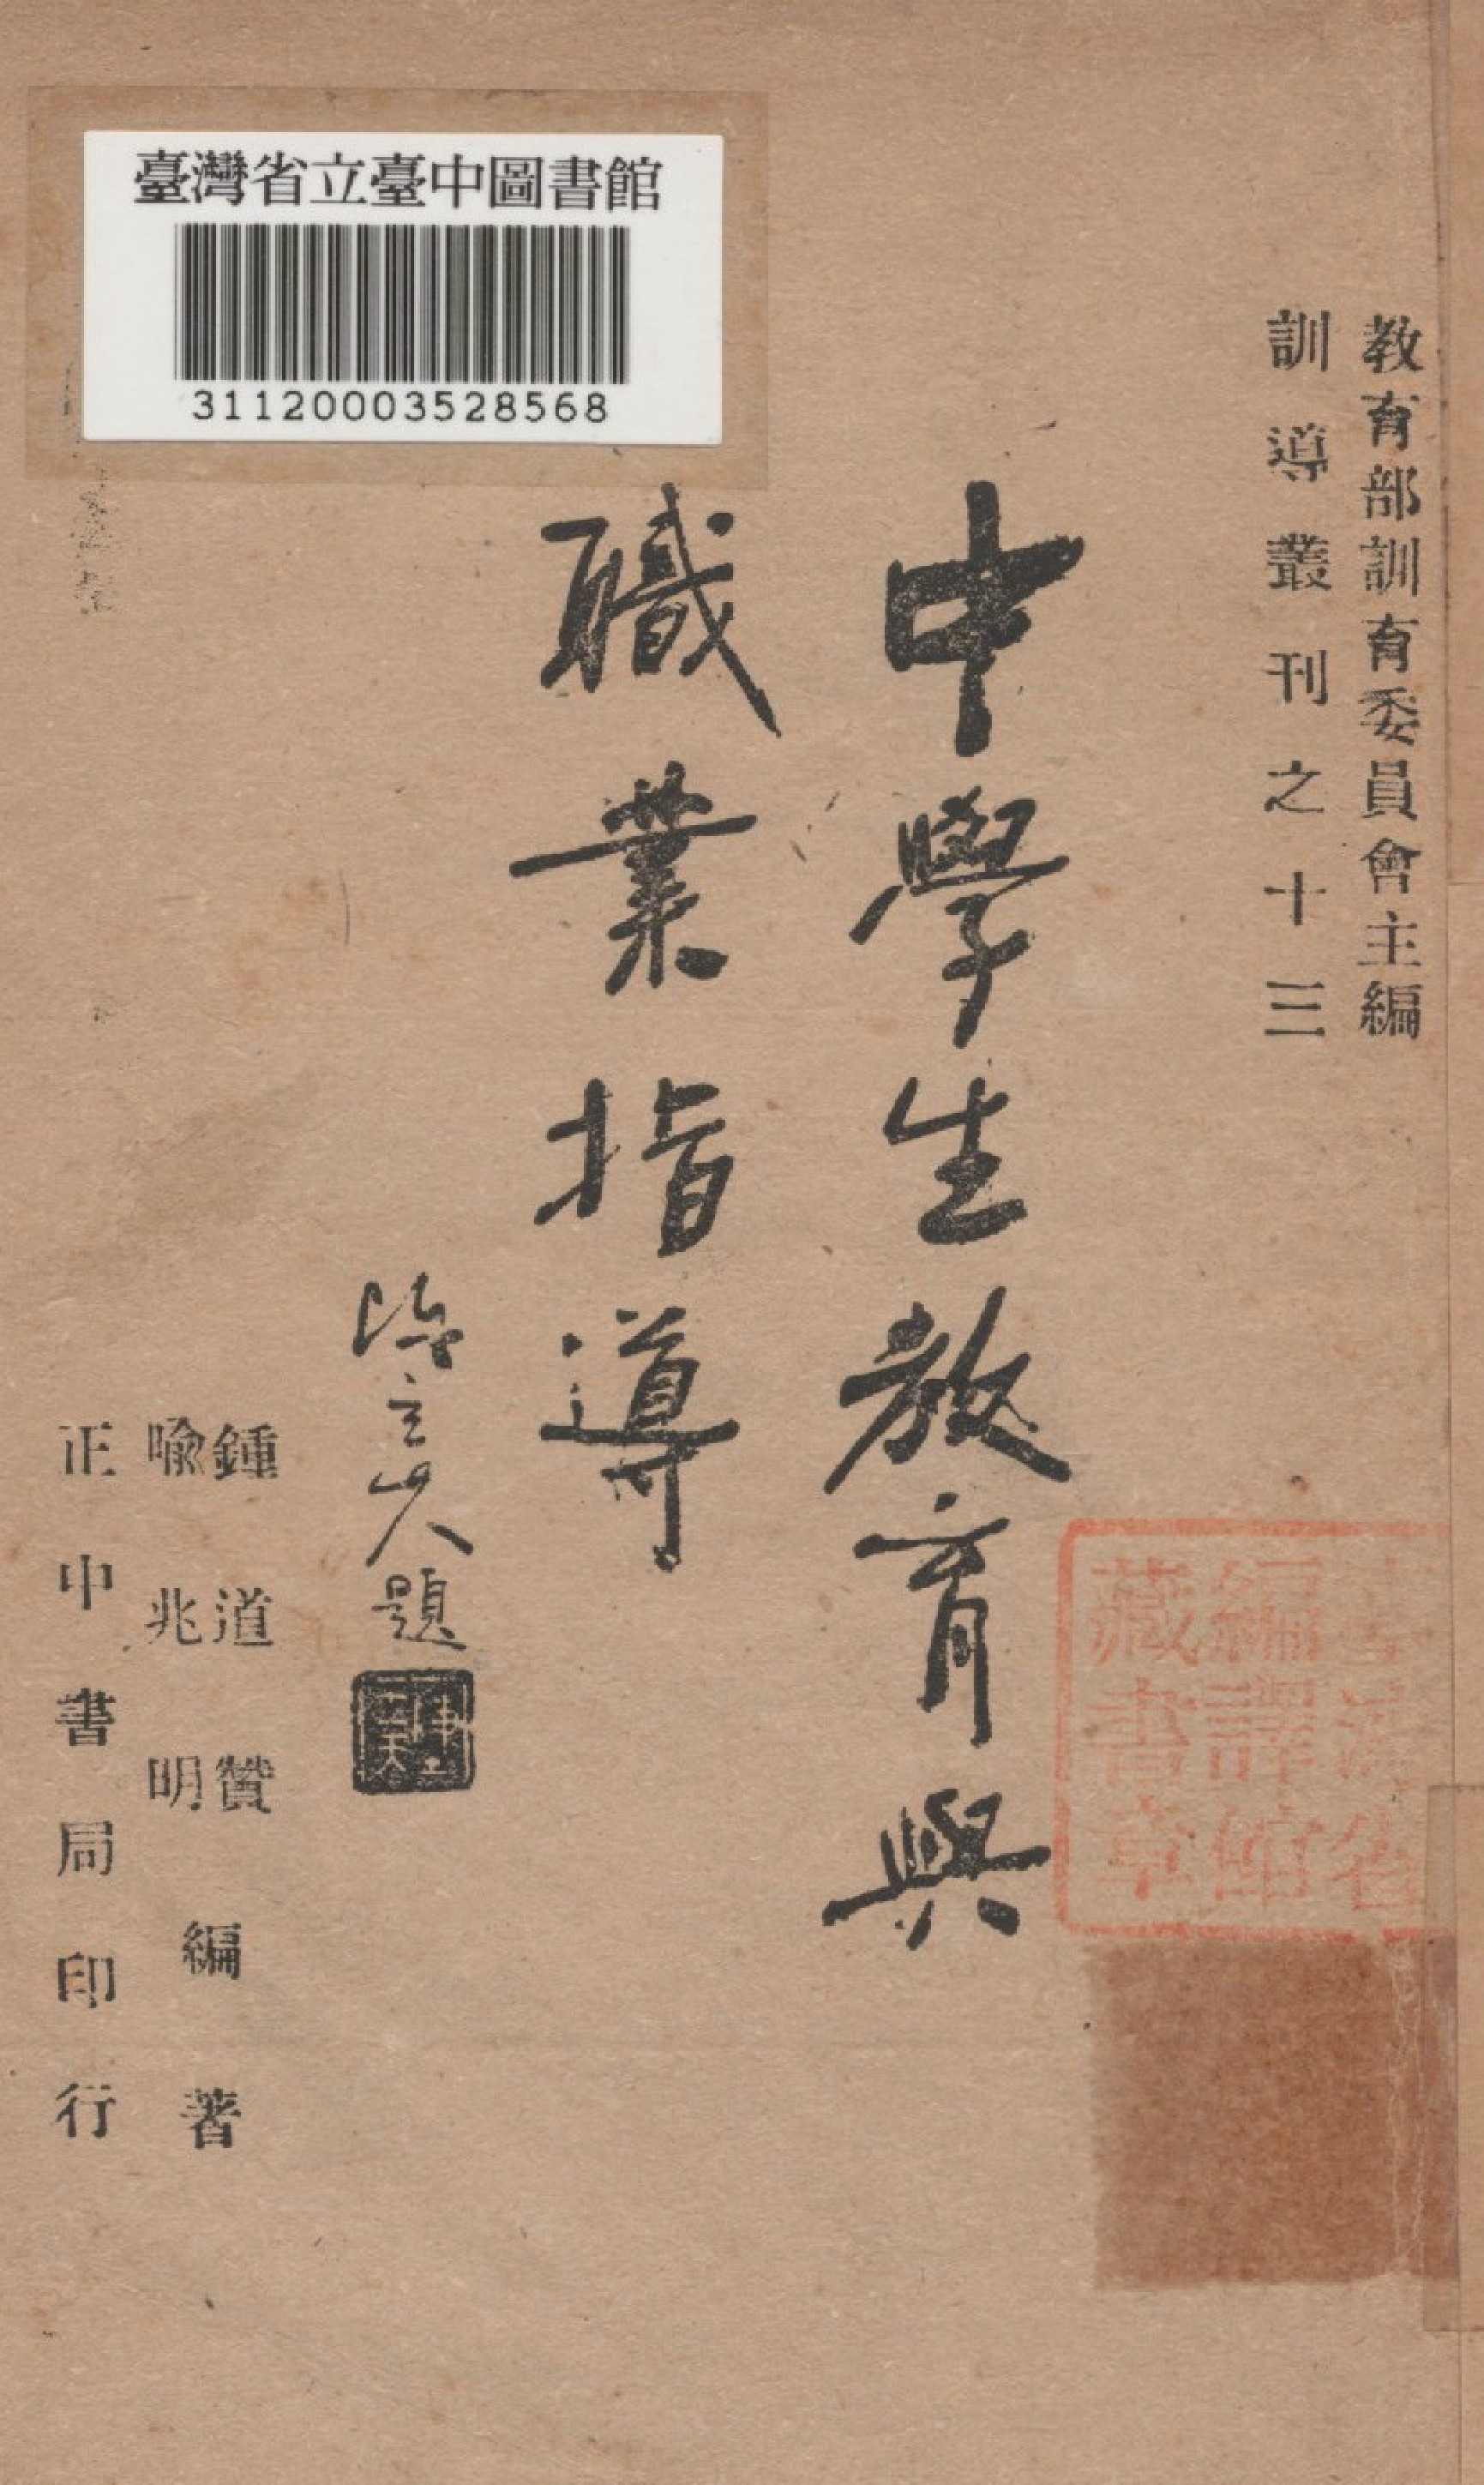 教育部訓育委員會主編
訓導叢刊之十三
中學生教育與
職業指導
陳立夫題
鍾道贊
喩兆明
編著
正中書局印行
臺灣省立臺中圖書館
311200003528568
臺灣省
編譯館
藏書章